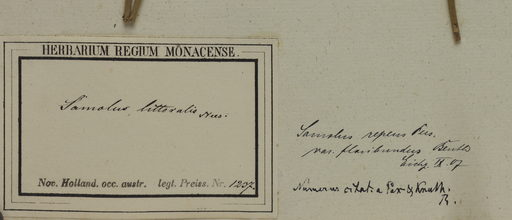 HERBARIUM REGIUM MONACENSE.
Samolus littoralis Nees.
Nov. Holland. occ. austr. legt. Preiss. Nr. 1207.
Samolus repens Pers.
var. floribundus Benth
IX 07
Numerus citat. a Pax & Knuth.